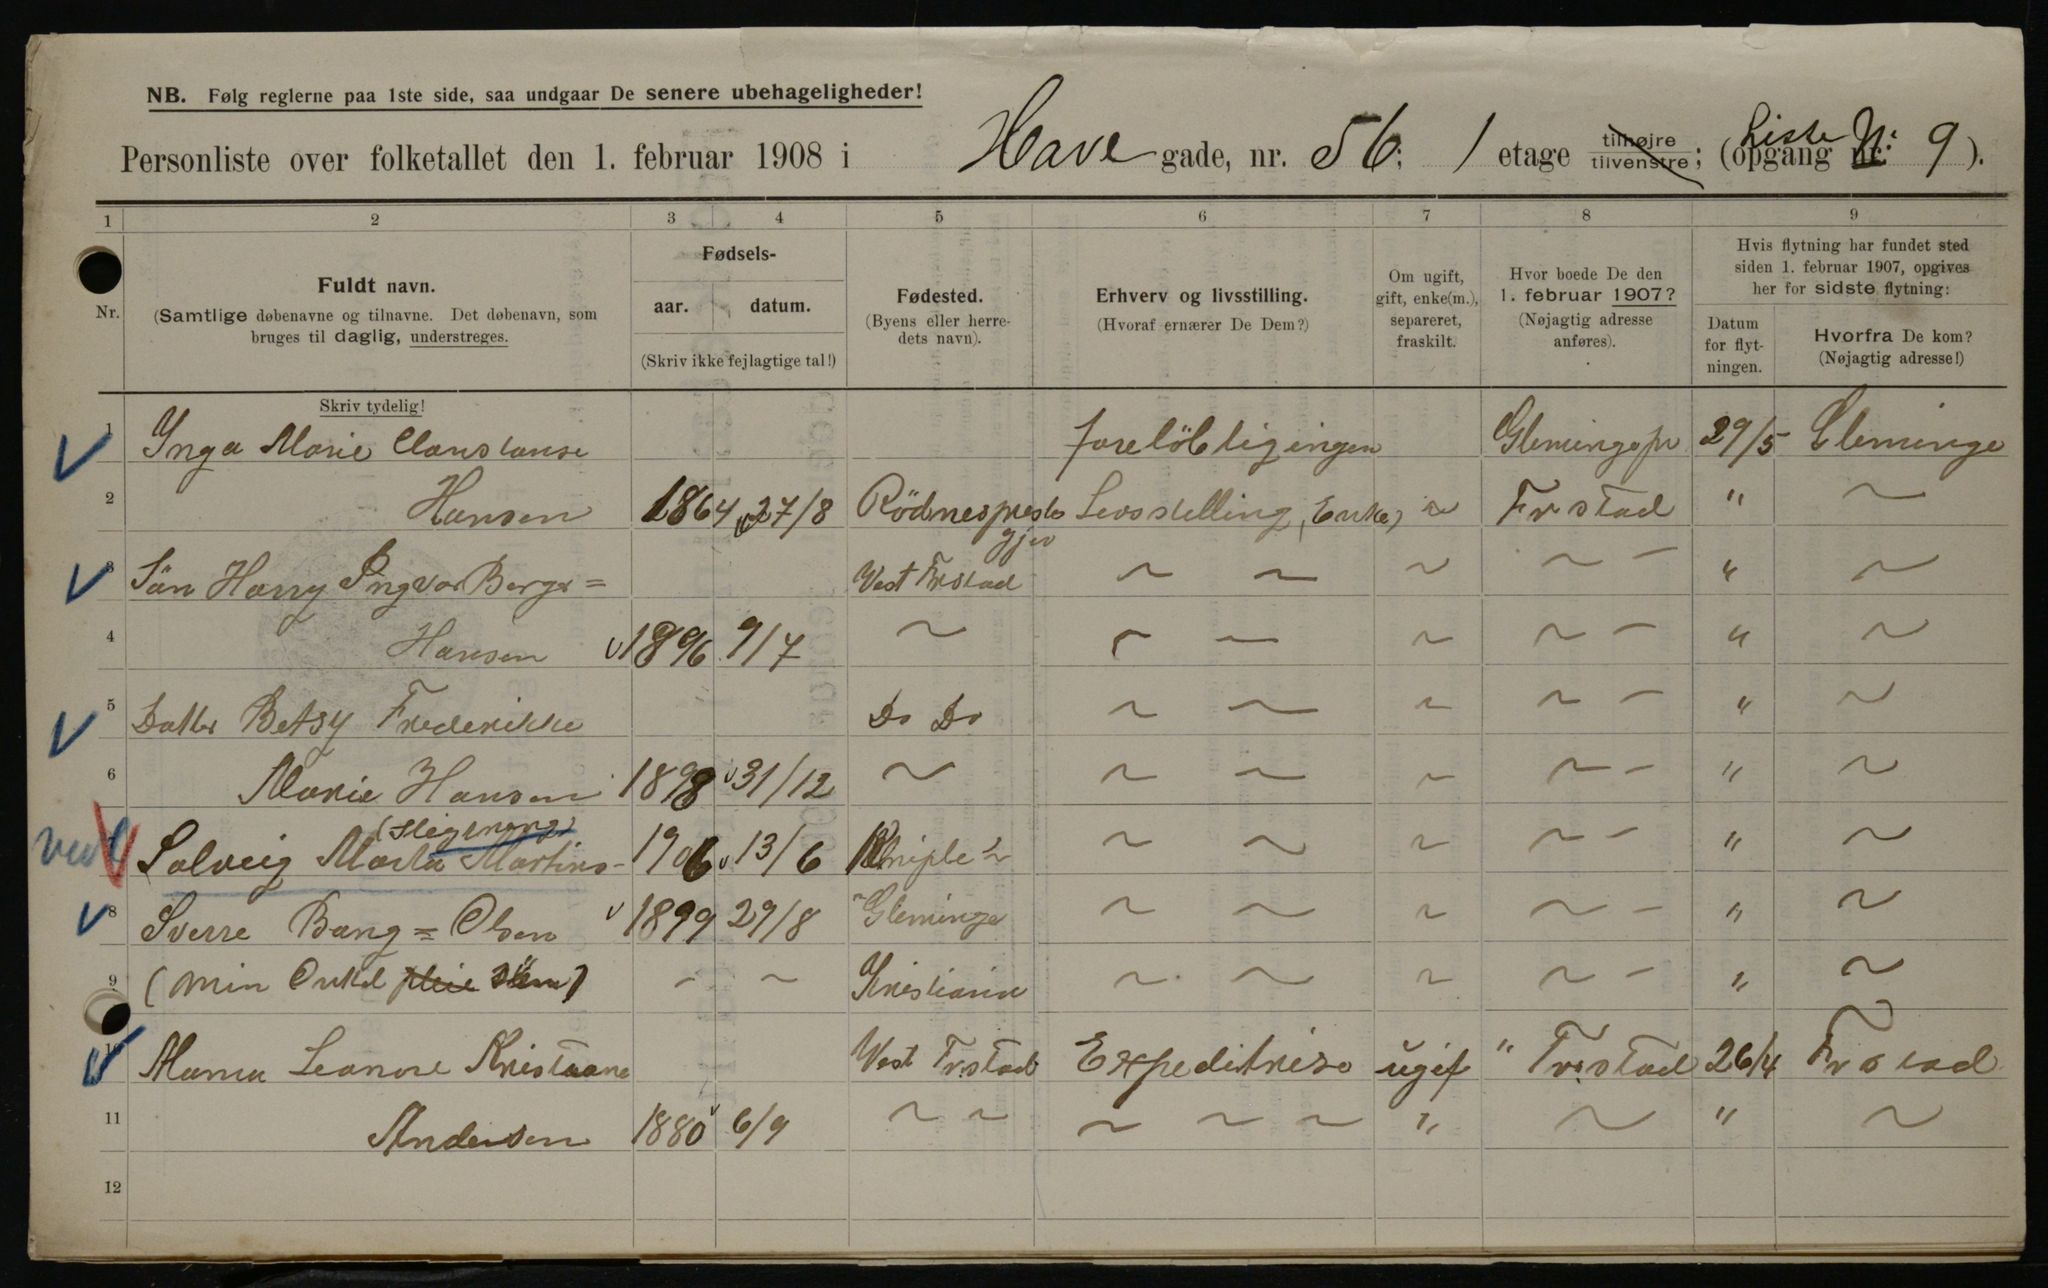 NB. Følg reglerne paa 1ste side, saa undgaar De senere ubehageligheder!
Personliste over folketallet den 1. februar 1908 i Have gade, nr. 56; 1 etage tilhøjre tilvenstre; (opgang nr. Liste Nr. 9).
1 2 3 4 5 6 7 8 9
Nr.
Fuldt navn.
(Samtlige døbenavne og tilnavne. Det døbenavn, som
bruges til daglig, understreges.
Skriv tydelig!
Fødsels-
aar. datum.
(Skriv ikke fejlagtige tal!)
Fødested.
(Byens eller herre-
dets navn).
Erhverv og livsstilling.
(Hvoraf ernærer De Dem?)
Om ugift,
gift, enke(m.),
separeret,
fraskilt.
Hvor boede De den
1. februar 1907?
(Nøjagtig adresse
anføres).
Hvis flytning har fundet sted
siden 1. februar 1907, opgives
her for sidste flytning:
Datum
for flyt-
ningen.
Hvorfra De kom?
(Nøjagtig adresse!)
1 Ynga Marie Constanse forelöbtig ingen Glemingepr 29/5 Gleminge
2 Hansen 1864 27/8 Rödnespreste Levstelling, Enke) " Frstad " ~
gjer
3 Sön Harry Yngvar Berger= Vest Frstad ~ ~ ~ ~ – " ~
4 Hansen 1896 9/7 ~ ~ – ~ ~ – " ~
5 Datter Betsy Frederikke Do Do ~ ~ ~ ~ – " ~
6 Marie Hansen 1898 31/12 ~ ~ ~ ~ ~ – " ~
7 Solveig Marta Martins- 1906 13/6 ~ ~ ~ ~ – " ~
8 Sverre Bang = Olsen 1899 29/8 Gleminge ~ ~ ~ ~ – " ~
9 (min Onkel Sön) – ~ Kristiania ~ ~ ~ ~ – " ~
10 Leonore Kristiane Vest Frstad Expeditrise ugif " Frstad 26/4 Frstad
11 Andersen 1880 6/9 ~ ~ ~ ~ ~ " ~ " ~
12